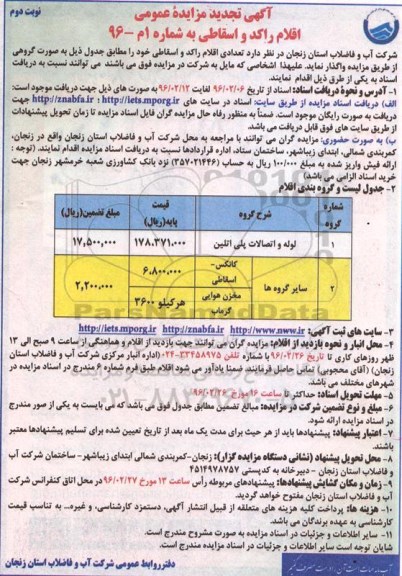 نوبت دوم
آگهی تجدید مزایدۀ عمومی
اقلام راکد و اسقاطی به شماره ۱م -۹۶
شرکت آب و فاضلاب استان زنجان در نظر دارد تعدادی اقلام راکد و اسقاطی خود را مطابق جدول ذیل به صورت گروهی
از طریق مزایده واگذار نماید. علیهذا اشخاصی که مایل به شرکت در مزایده فوق می باشند می توانند نسبت به دریافت
اسناد به یکی از طرق ذیل اقدام نمایند.
۱- آدرس و نحوۀ دریافت اسناد: اسناد از تاریخ ۹۶/۰۲/۰۶ لغایت ۹۶/۰۲/۱۲ به صورت های ذیل جهت دریافت موجود است:
الف) دریافت اسناد مزایده از طریق سایت: اسناد در سایت های http://iets.mporg.ir ؛ http://znabfa.ir جهت
دریافت به صورت رایگان موجود است. ضمناً به منظور رفاه حال مزایده گران فایل اسناد مزایده تا زمان تحویل پیشنهادات
از طریق سایت های فوق قابل دریافت می باشد.
ب) به صورت حضوری: مزایده گران می توانند با مراجعه به محل شرکت آب و فاضلاب استان زنجان واقع در زنجان،
کمربندی شمالی، ابتدای زیباشهر، ساختمان ستاد، اداره قراردادها نسبت به دریافت اسناد مزایده اقدام نمایند. (توجه :
ارائه فیش واریز شده به مبلغ ۱۰۰/۰۰۰ ریال به حساب (۳۵۷۰۲۱۴۴۶) نزد بانک کشاورزی شعبه خرمشهر زنجان جهت
خرید اسناد الزامی می باشد)
۲- جدول لیست و گروه بندی اقلام
شماره گروه | شرح گروه | قیمت پایه(ریال) | مبلغ تضمین(ریال)
۱ | لوله و اتصالات پلی اتلین | ۱۷۸.۳۷۱.۰۰۰ | ۱۷,۵۰۰,۰۰۰
۲ | سایر گروه ها | کانکس- اسقاطی | ۶.۸۰۰.۰۰۰ | ۲,۲۰۰,۰۰۰
مخزن هوایی گرماب | هرکیلو ۳۶۰۰
۳- سایت های ثبت آگهی: http://www.nww.ir http://znabfa.ir http://iets.mporg.ir
۴- محل انبار و نحوه بازدید از اقلام: مزایده گران می توانند جهت بازدید از اقلام و هماهنگی از ساعت ۹ صبح الی ۱۳
ظهر روزهای کاری تا تاریخ ۹۶/۰۲/۲۶ با شماره تلفن ۳۳۴۵۸۹۷۵-۰۲۴ (اداره انبار مرکزی شرکت آب و فاضلاب استان
زنجان) (آقای محجوبی) تماس حاصل فرمایند. ضمناً یادآور می شود اقلام طبق فرم شماره ۶ مندرج در اسناد مزایده در
شهرهای مختلف می باشد.
۵- مهلت تحویل اسناد: حداکثر تا ساعت ۱۶ مورخ ۹۶/۰۲/۲۶
۶- مبلغ و نوع تضمین شرکت در مزایده: مبالغ تضمین مطابق جدول فوق می باشد که می بایست به یکی از صور مندرج
در اسناد مزایده ارائه شود.
۷- اعتبار پیشنهاد: پیشنهادها باید از هر حیث برای مدت یک ماه بعد از تاریخ تعیین شده برای تسلیم پیشنهادها معتبر
باشند.
۸- محل تحویل پیشنهاد (نشانی دستگاه مزایده گزار): زنجان-کمربندی شمالی ابتدای زیباشهر- ساختمان شرکت آب
و فاضلاب استان زنجان - دبیرخانه به کدپستی ۴۵۱۴۹۷۸۷۵۷
۹- زمان و مکان گشایش پیشنهادها: پیشنهادهای مربوطه رأس ساعت ۱۳ مورخ ۹۶/۰۲/۲۷ در محل اتاق کنفرانس شرکت
آب و فاضلاب استان زنجان مفتوح خواهد گردید.
۱۰- هزینه ها: پرداخت کلیه هزینه های متعلقه از قبیل انتشار آگهی، دستمزد کارشناسی، و غیره... به تناسب قیمت
کارشناسی به عهده برندگان می باشد.
شایان سایر اطلاعات و جزئیات در اسناد مزایده به صورت مشروح مندرج است.
شایان توجه است سایر اطلاعات و جزئیات در اسناد مزایده مندرج است.
دفتر روابط عمومی شرکت آب و فاضلاب استان زنجان